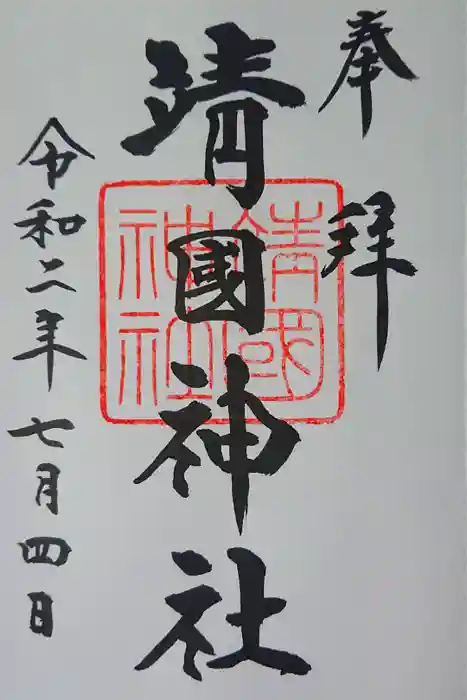 奉拝
靖國神社
靖國神社
令和二年七月四日